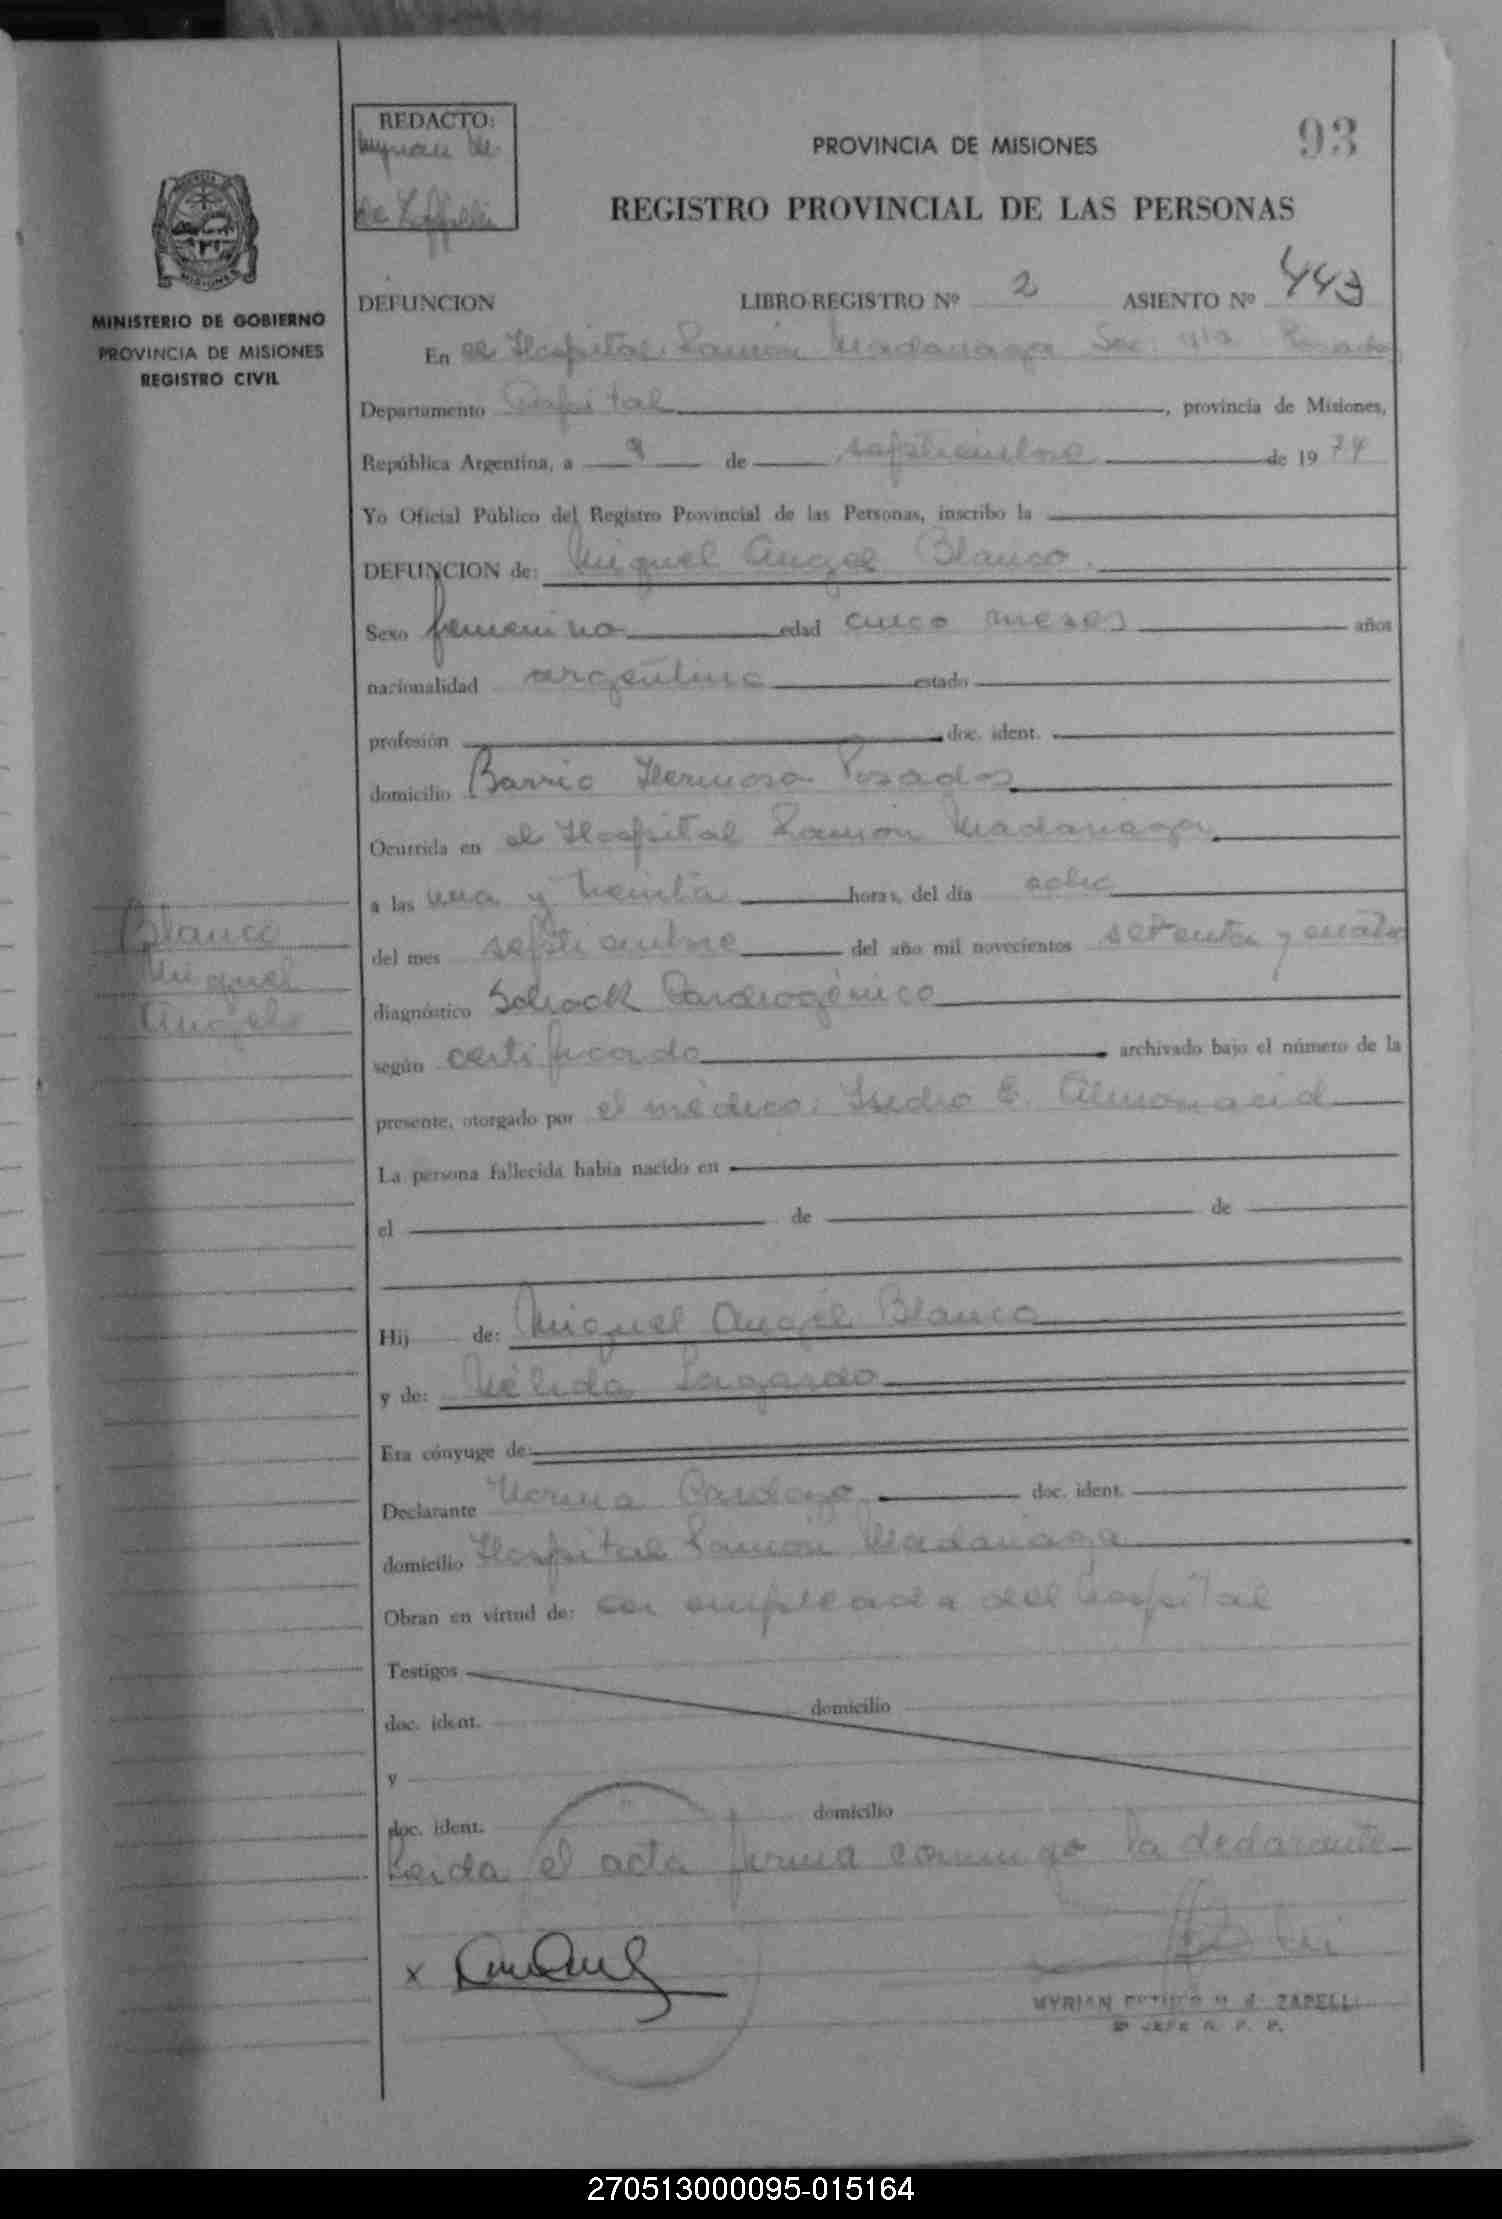 REDACTO:
Myrian M.
de
PROVINCIA DE MISIONES
93
REGISTRO PROVINCIAL DE LAS PERSONAS
MISIONES
MINISTERIO DE GOBIERNO
PROVINCIA DE MISIONES
REGISTRO CIVIL
DEFUNCION LIBRO REGISTRO Nº 2 ASIENTO Nº 443
En el Hospital Ramón Madariaga Sec. Posadas
Departamento Capital, provincia de Misiones,
República Argentina, a 9 de septiembre de 1974
Yo Oficial Público del Registro Provincial de las Personas, inscribo la
DEFUNCION de: Miguel Angel Blanco.
Sexo femenino edad cinco meses años
nacionalidad argentina estado
profesión doc. ident.
domicilio Barrio Hermoso Posadas
Ocurrida en el Hospital Ramón Madariaga
a las una y treinta horas, del día ocho
del mes septiembre del año mil novecientos setenta y cuatro
diagnóstico Schock Cardiogénico
según certificado archivado bajo el número de la
presente, otorgado por el médico: Isidro E. Almonacid
La persona fallecida había nacido en
el de de
Hij de: Miguel Angel Blanco
y de: Nélida Lagardo
Era cónyuge de:
Declarante Norma Cardozo doc. ident.
domicilio Hospital Ramón Madariaga
Obran en virtud de: ser empleada del hospital
Testigos
doc. ident. domicilio
y
doc. ident. domicilio
Leida el acta firma conmigo la declarante
x
MYRIAN M. de ZAPELLI
JEFE R. P. P.
Blanco
Miguel
Angel
270513000095-015164